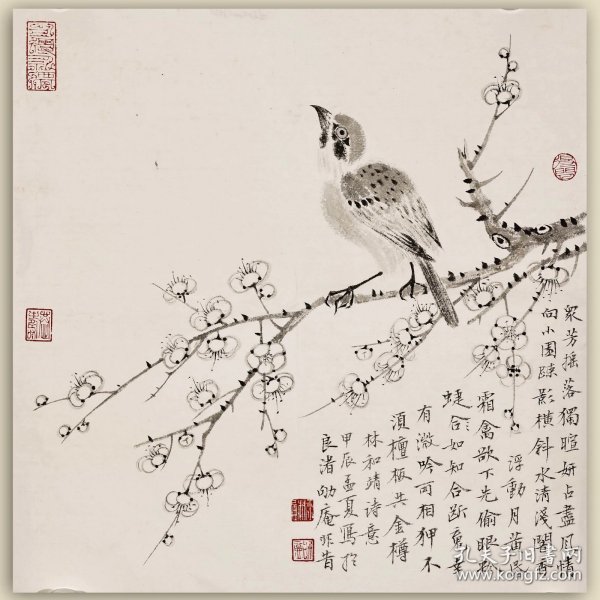 众芳摇落獨暄妍占盡風情
向小園疎影橫斜水清淺闇香
浮動月黃昏
霜禽欲下先偷眼粉
蝶合如知合断魂幸
有微吟可相狎不
須檀板共金樽
林和靖诗意
甲辰孟夏寫於
良渚
孔夫子旧书网
www.kongfz.com